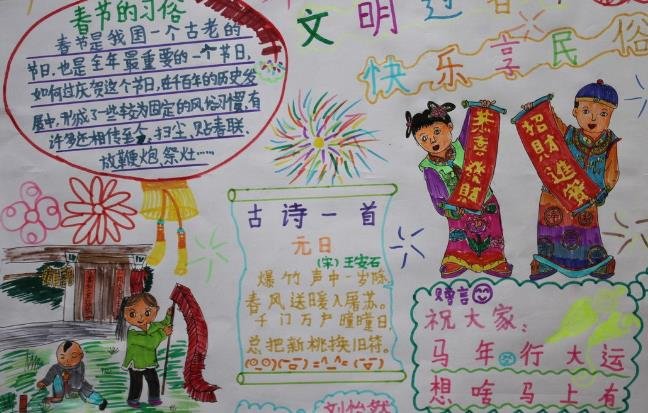 春节的习俗
春节是我国一个古老的
节日,也是全年最重要的一个节日,
如何过庆贺这个节日,在千百年的历史发
展中,形成了一些较为固定的风俗习惯,有
许多还相传至今,扫尘、贴春联、
放鞭炮、祭灶……
文明过春
快乐享民俗
恭喜发财
招財進寶
古诗一首
元日
(宋)王安石
爆竹声中一岁除,
春风送暖入屠苏。
千门万户曈曈日,
总把新桃换旧符。
赠言
祝大家:
马年行大运
想啥马上有
刘怡然